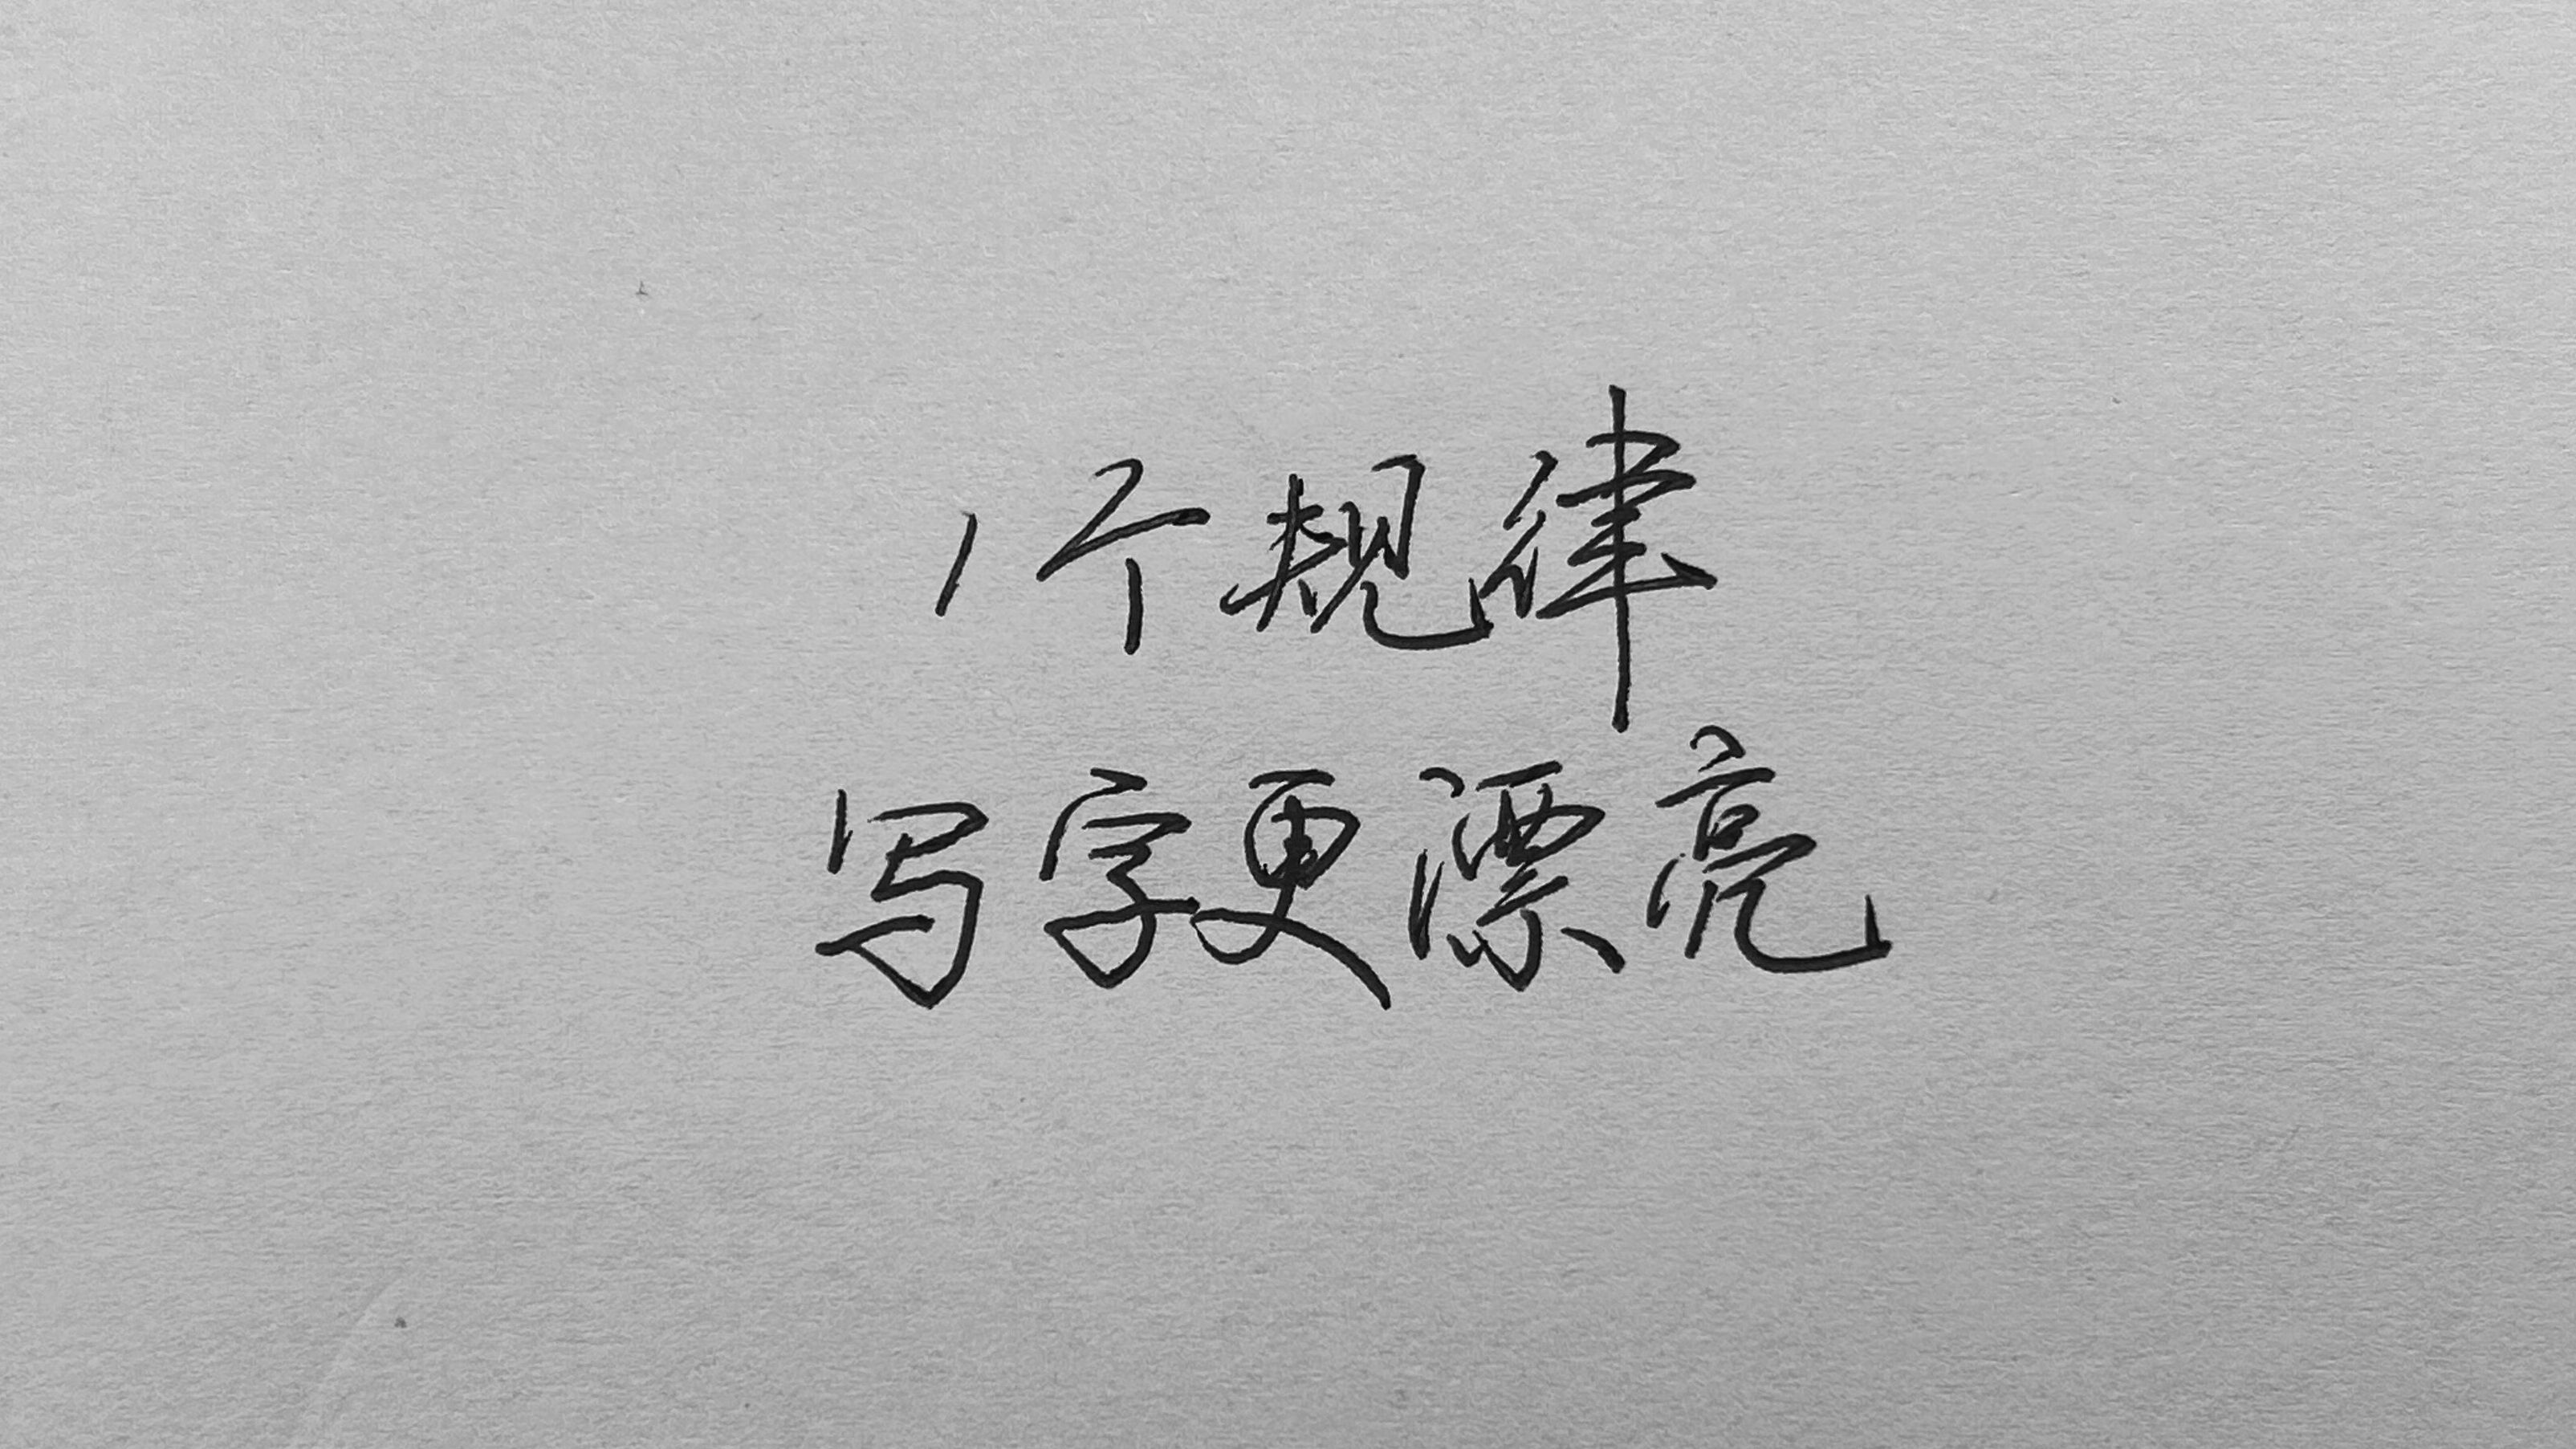 1个规律
写字更漂亮